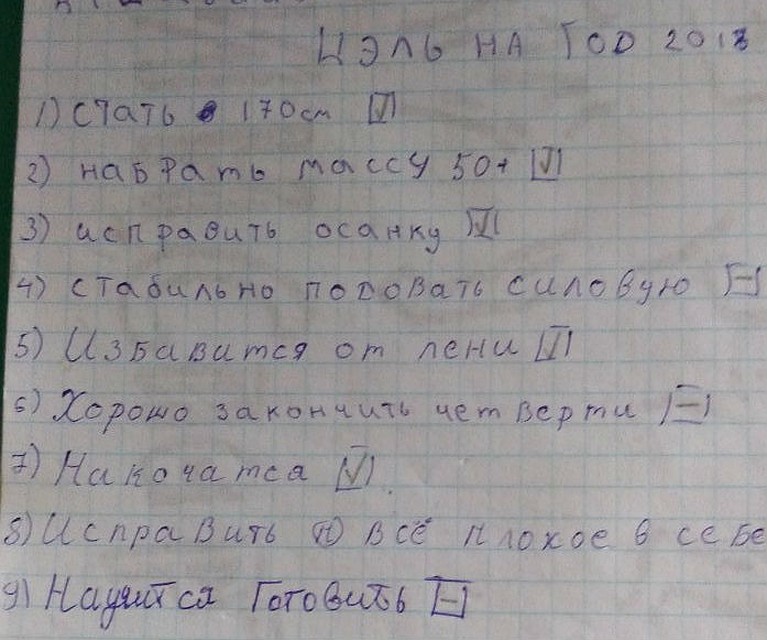 Цэль на Год 2018
1) стать 170см
2) набрать массу 50+
3) исправить осанку
4) стабильно подовать силовую
5) Избавится от лени
6) Хорошо закончить четверти
7) Накочатся
8) Исправить всё плохое в себе
9) Научится Готовить